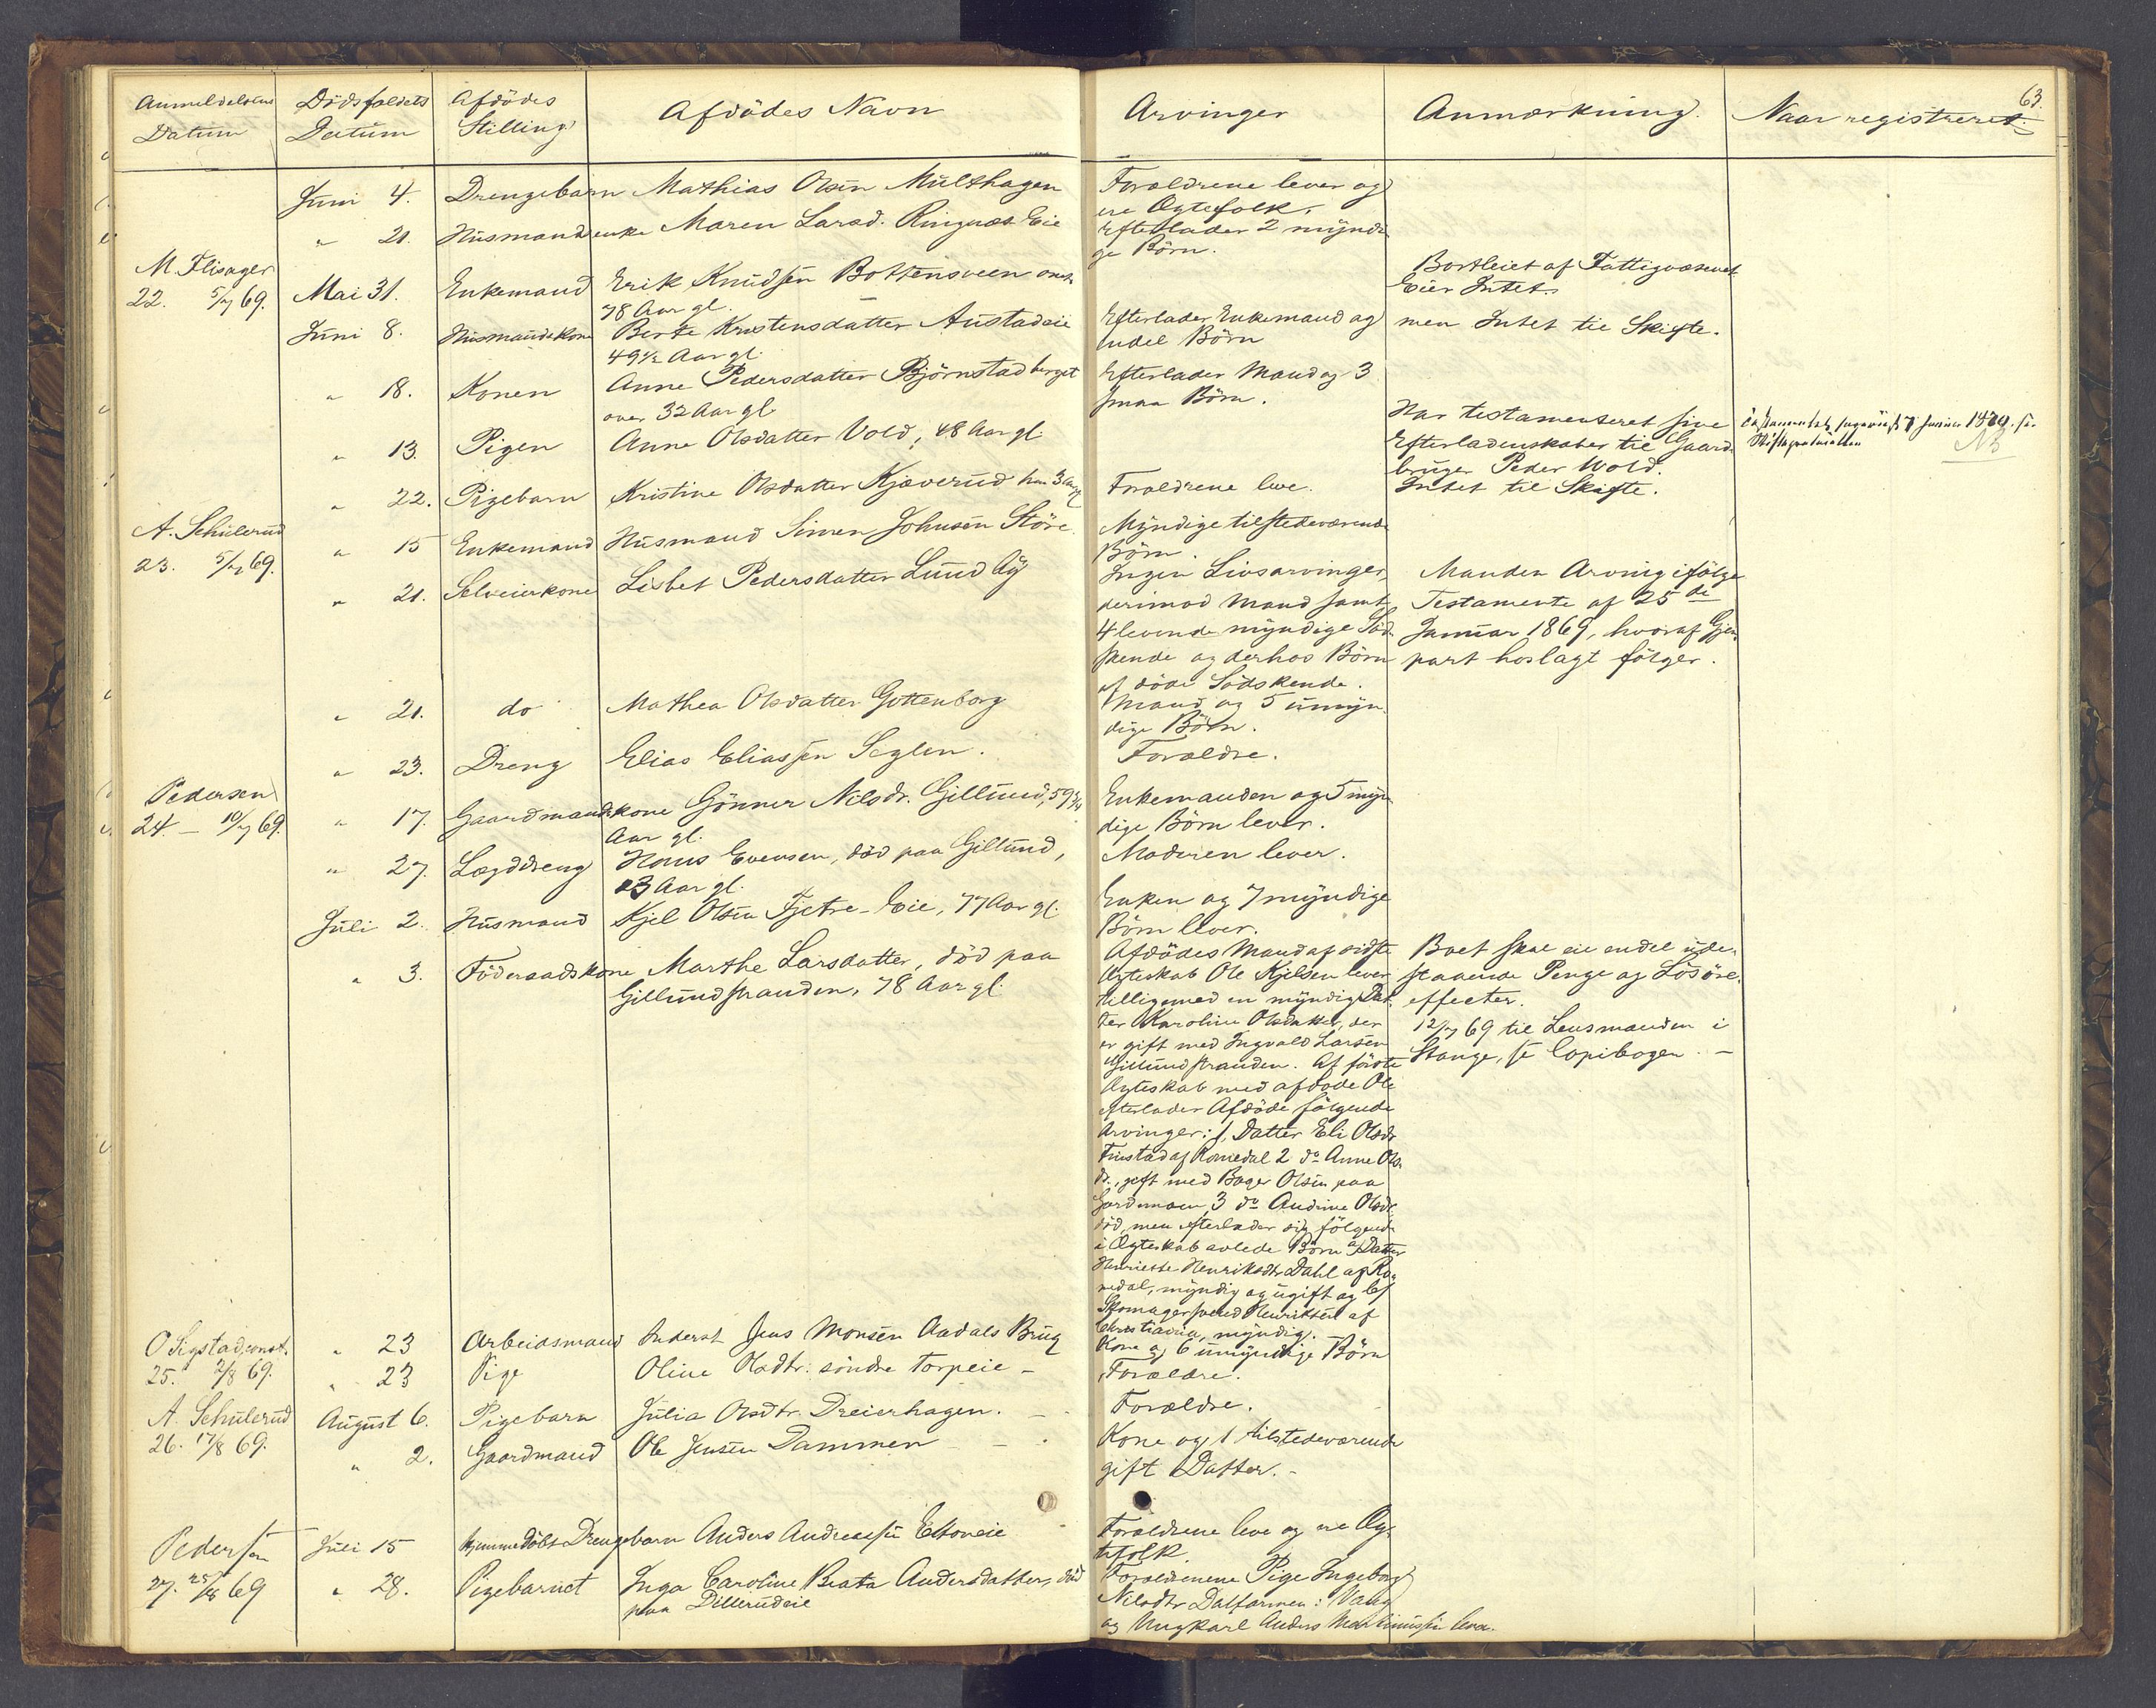 Anmeldelsens Datum
Dödsfaldets Datum
Afdödes Stilling
Afdödes Navn
Arvinger
Anmærkning.
Naar registreret.
63.
Juni 4. Drengebarn Mathias Olsen Mülthagen
Forældrene lever og
ere Ægtefolk.
" 21. Husmandsenke Maren Larsd. Ringnæs Eie
Efterlader 2 myndi
ge Börn.
M. Flisager
22. 5/7 69.
Mai 31. Enkemand Erik Knudsen Bottensveen
78 Aar gl.
Bortleiet af Fattigvæsenet
Eier Intet.
Juni 8. Husmandskone Berte Kristensdatter Austadeie
49½ Aar gl.
Efterlader Enkemand og
endel Börn
men Intet til Skifte.
" 18. Konen Anne Pedersdatter Björnstadberget
over 32 Aar gl.
Efterlader Mand og 3
smaa Börn.
" 13. Pigen Anne Olsdatter Vold, 48 Aar gl.
Har testamenteret sine
Efterladenskaber til Gaard-
bruger Peder Wold.
7 Januar 1870. se
Skifteprotokollen
NB
" 22. Pigebarn Kristine Olsdatter Kjæverud
Forældrene leve.
Intet til Skifte.
A. Schulerud
23. 5/7 69.
" 15 Enkemand Husmand Simen Johnsen Störe
Myndige tilstedeværende
Börn.
" 21. Selveierkone Lisbet Pedersdatter Lund Ay
Ingen Livsarvinger,
derimod Mand samt
4 levende myndige Söd-
skende og derhos Börn
af döde Södskende.
Manden Arving ifölge
Testamente af 25de
Januar 1869, hvoraf Gjen-
part hoslagt fölger.
" 21. do Mathea Olsdatter Gottenborg
Mand og 5 umyn-
dige Börn.
" 23. Dreng Elias Eliassen Seglen.
Forældre.
Pedersen
24 - 10/7 69.
" 17. Gaardmandskone Gönner Nilsdr. Gillund, 59¾
Aar gl.
Enkemanden og 5 myn
dige Börn lever.
" 27. Lægddreng Hans Evensen, död paa Gillund,
23 Aar gl.
Moderen lever.
Juli 2. Husmand Kjel Olsen Tjetre-Eie, 77 Aar gl.
Enken og 7 myndige
Börn lever.
" 3. Föderaadskone Marthe Larsdatter, död paa
Gillundstranden, 78 Aar gl.
Afdödes Mand af sidste
Ægteskab Ole Kjelsen lever
tilligemed en myndig Dat-
ter Karoline Olsdatter, der
er gift med Ingvald Larsen
Gillundstranden. Af förste
Ægteskab med afdöde Ole
efterlader Afdöde fölgende
Arvinger: 1, Datter Eli Olsdr
Finstad af Romedal 2 do Anne Ols-
dr., gift med Bager Olsen paa
Gardemoen, 3 do Andrine Olsdr.
död, men efterlader sig fölgende
i Ægteskab avlede Börn a) Datter
Henriette Henriksdtr Dahl af Ro-
medal, myndig og ugift og b)
Skomagersvend Henriksen af
Christiania, myndig. -
Boet skal eie endel ude-
staaende Penge og Lösöre-
effecter.
12/7 69 til Lensmanden i
Stange, se Copibogen. -
O Sigstad, const.
25. 2/8 69.
" 23 Arbeidsmand Inderst Jens Monsen Aadals Brug
Kone og 6 umyndige Börn
" 23 Pige Oline Olsdtr. söndre Torpeie -
Forældre.
A. Schulerud
26. 17/8 69.
August 6. Pigebarn Julia Olsdtr. Dreierhagen.
Forældre.
" 2. Gaardmand Ole Jensen Dammen
Kone og 1 tilstedeværende
gift Datter. -
Pedersen
27. 25/8 69
Juli 15 Hjemmedöbt Drengebarn Anders Andreassen Ekoneie
Forældrene leve og ere Æg-
tefolk.
" 28. Pigebarnet Inga Caroline Beata Andersdatter, död
paa Dillerudeie
Forældrenene Pige Ingeborg
Nilsdtr Dalfarmen i Vang
og Ungkarl Anders Martinussen lever.